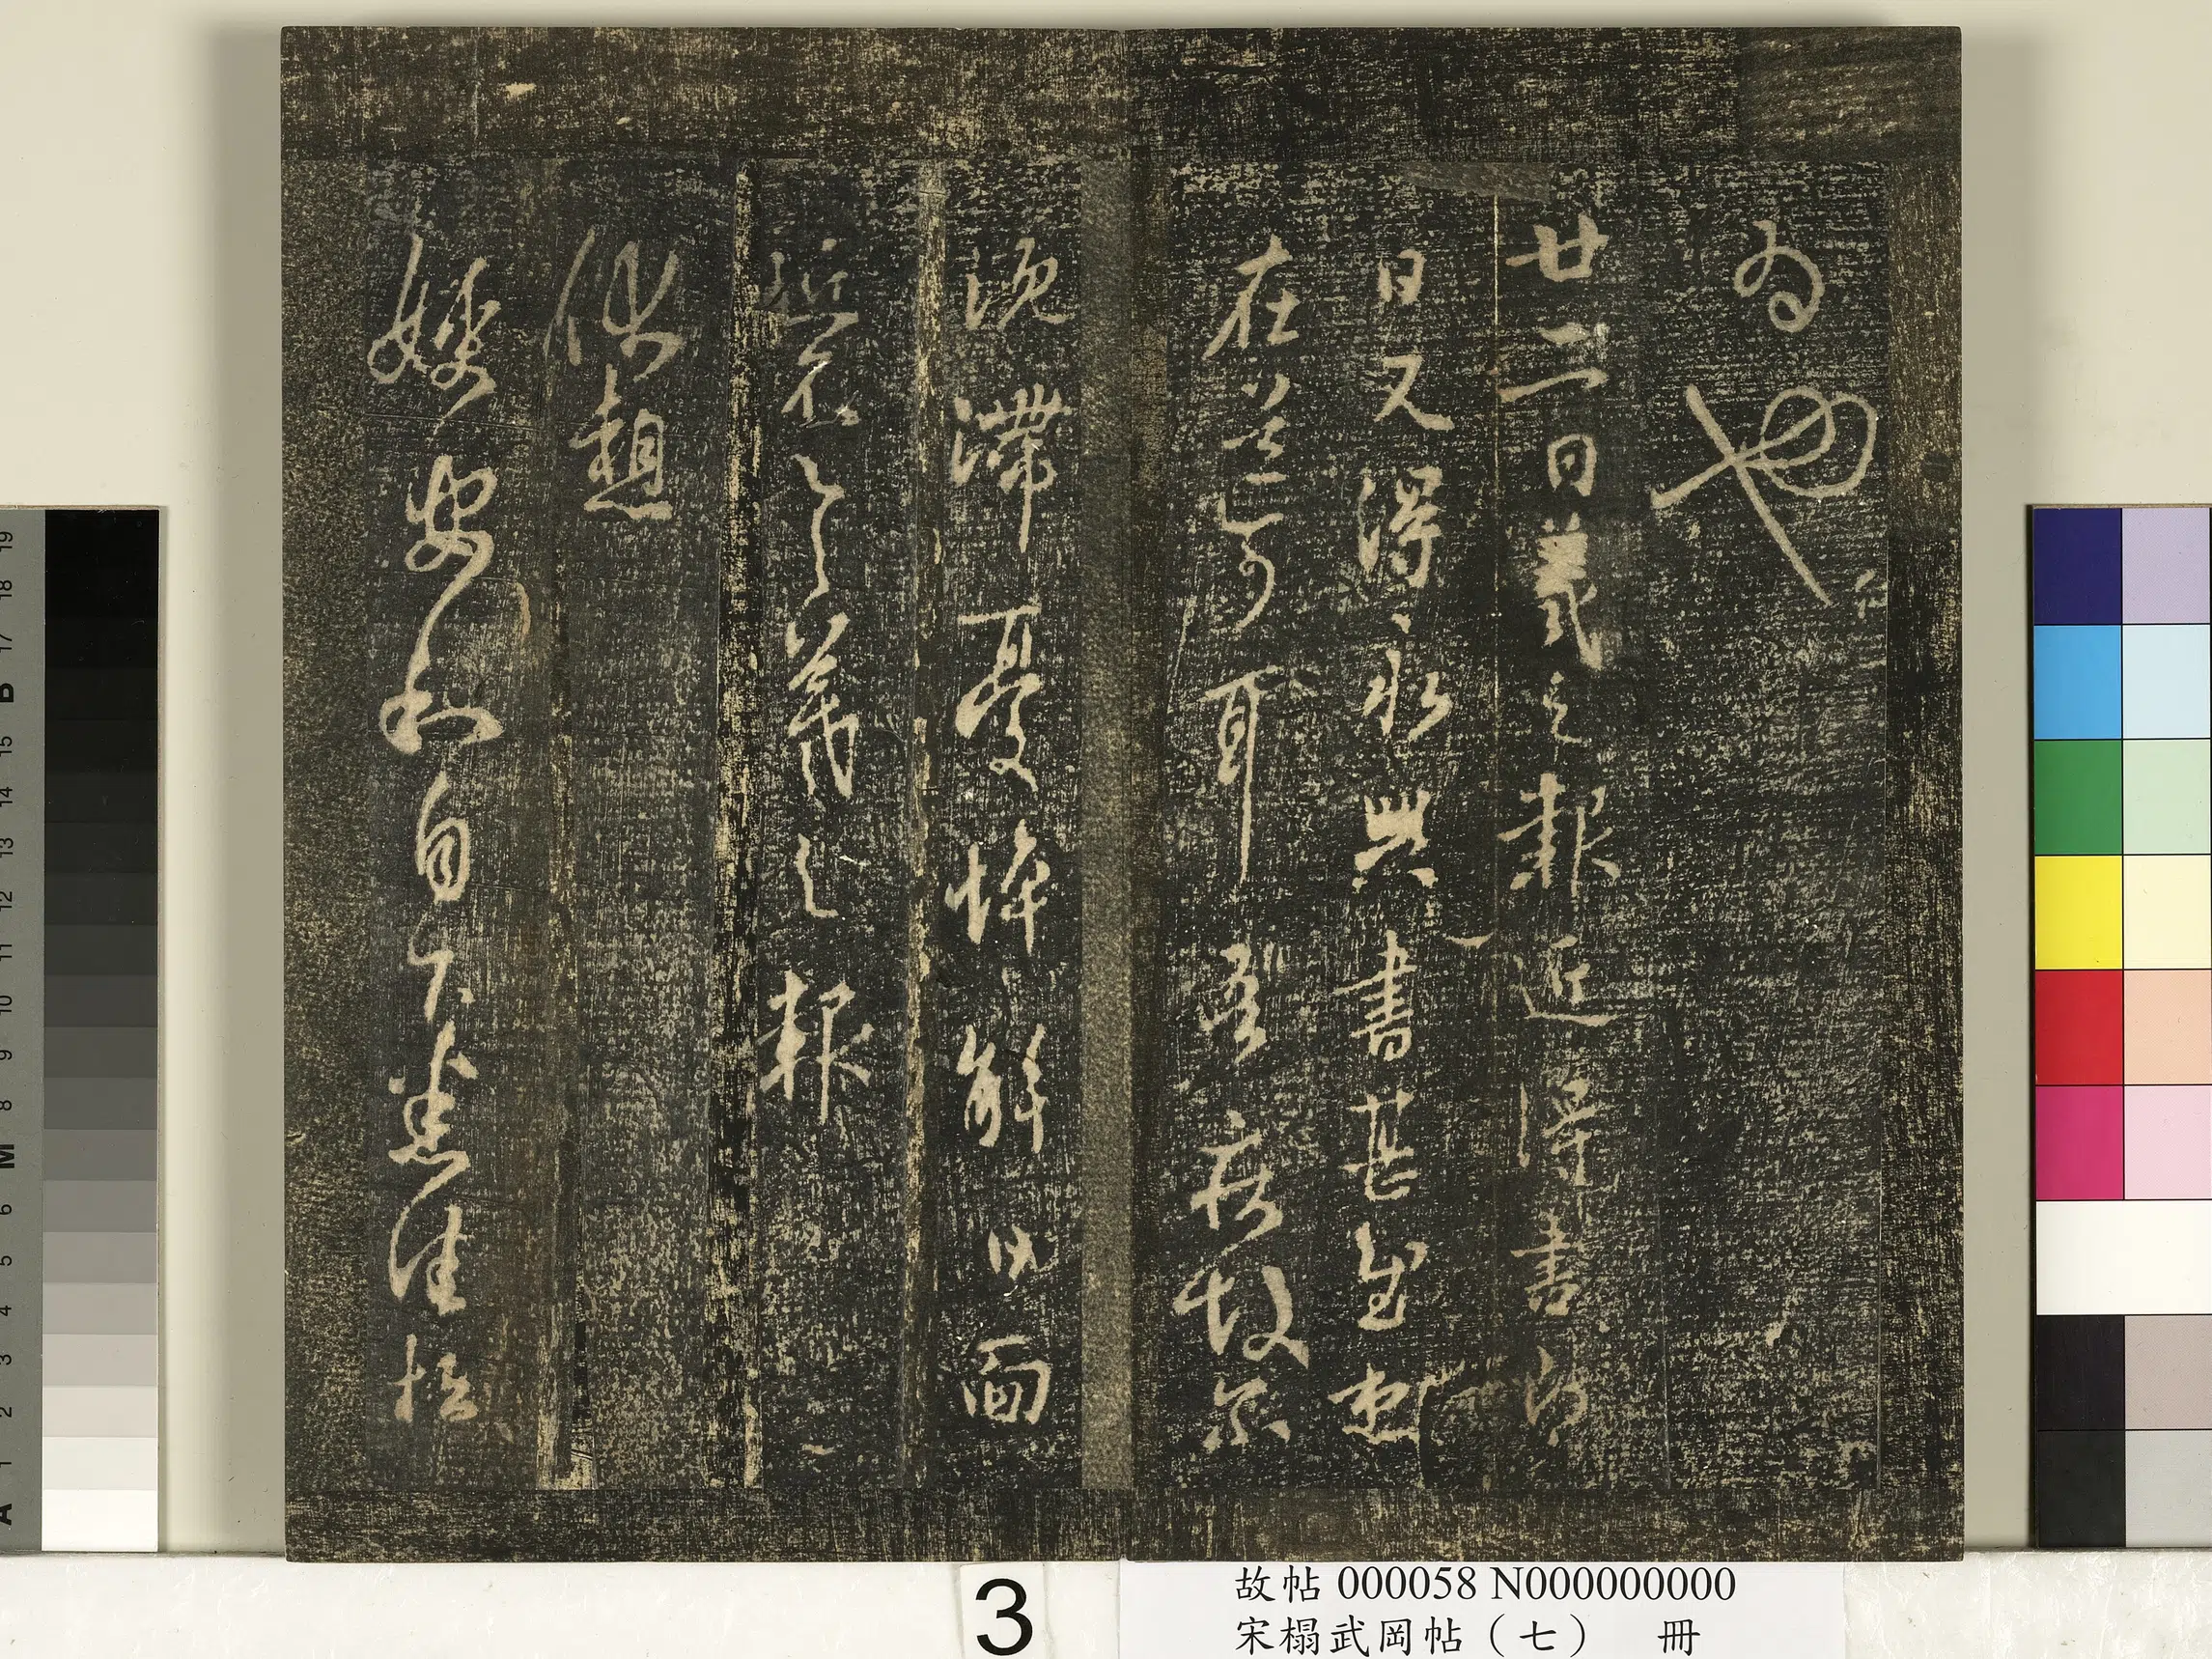 為也
廿二日羲之報近得書即
日又得永興書甚慰想
在道可耳吾疾故爾
沉滯憂悴解日面
近不具羲之報
伏想
嫂安和自下悉佳松
3
故帖 000058 N000000000
宋榻武岡帖（七） 冊
19
18
17
B
15
14
13
12
11
10
9
8
M
6
5
4
3
2
1
A